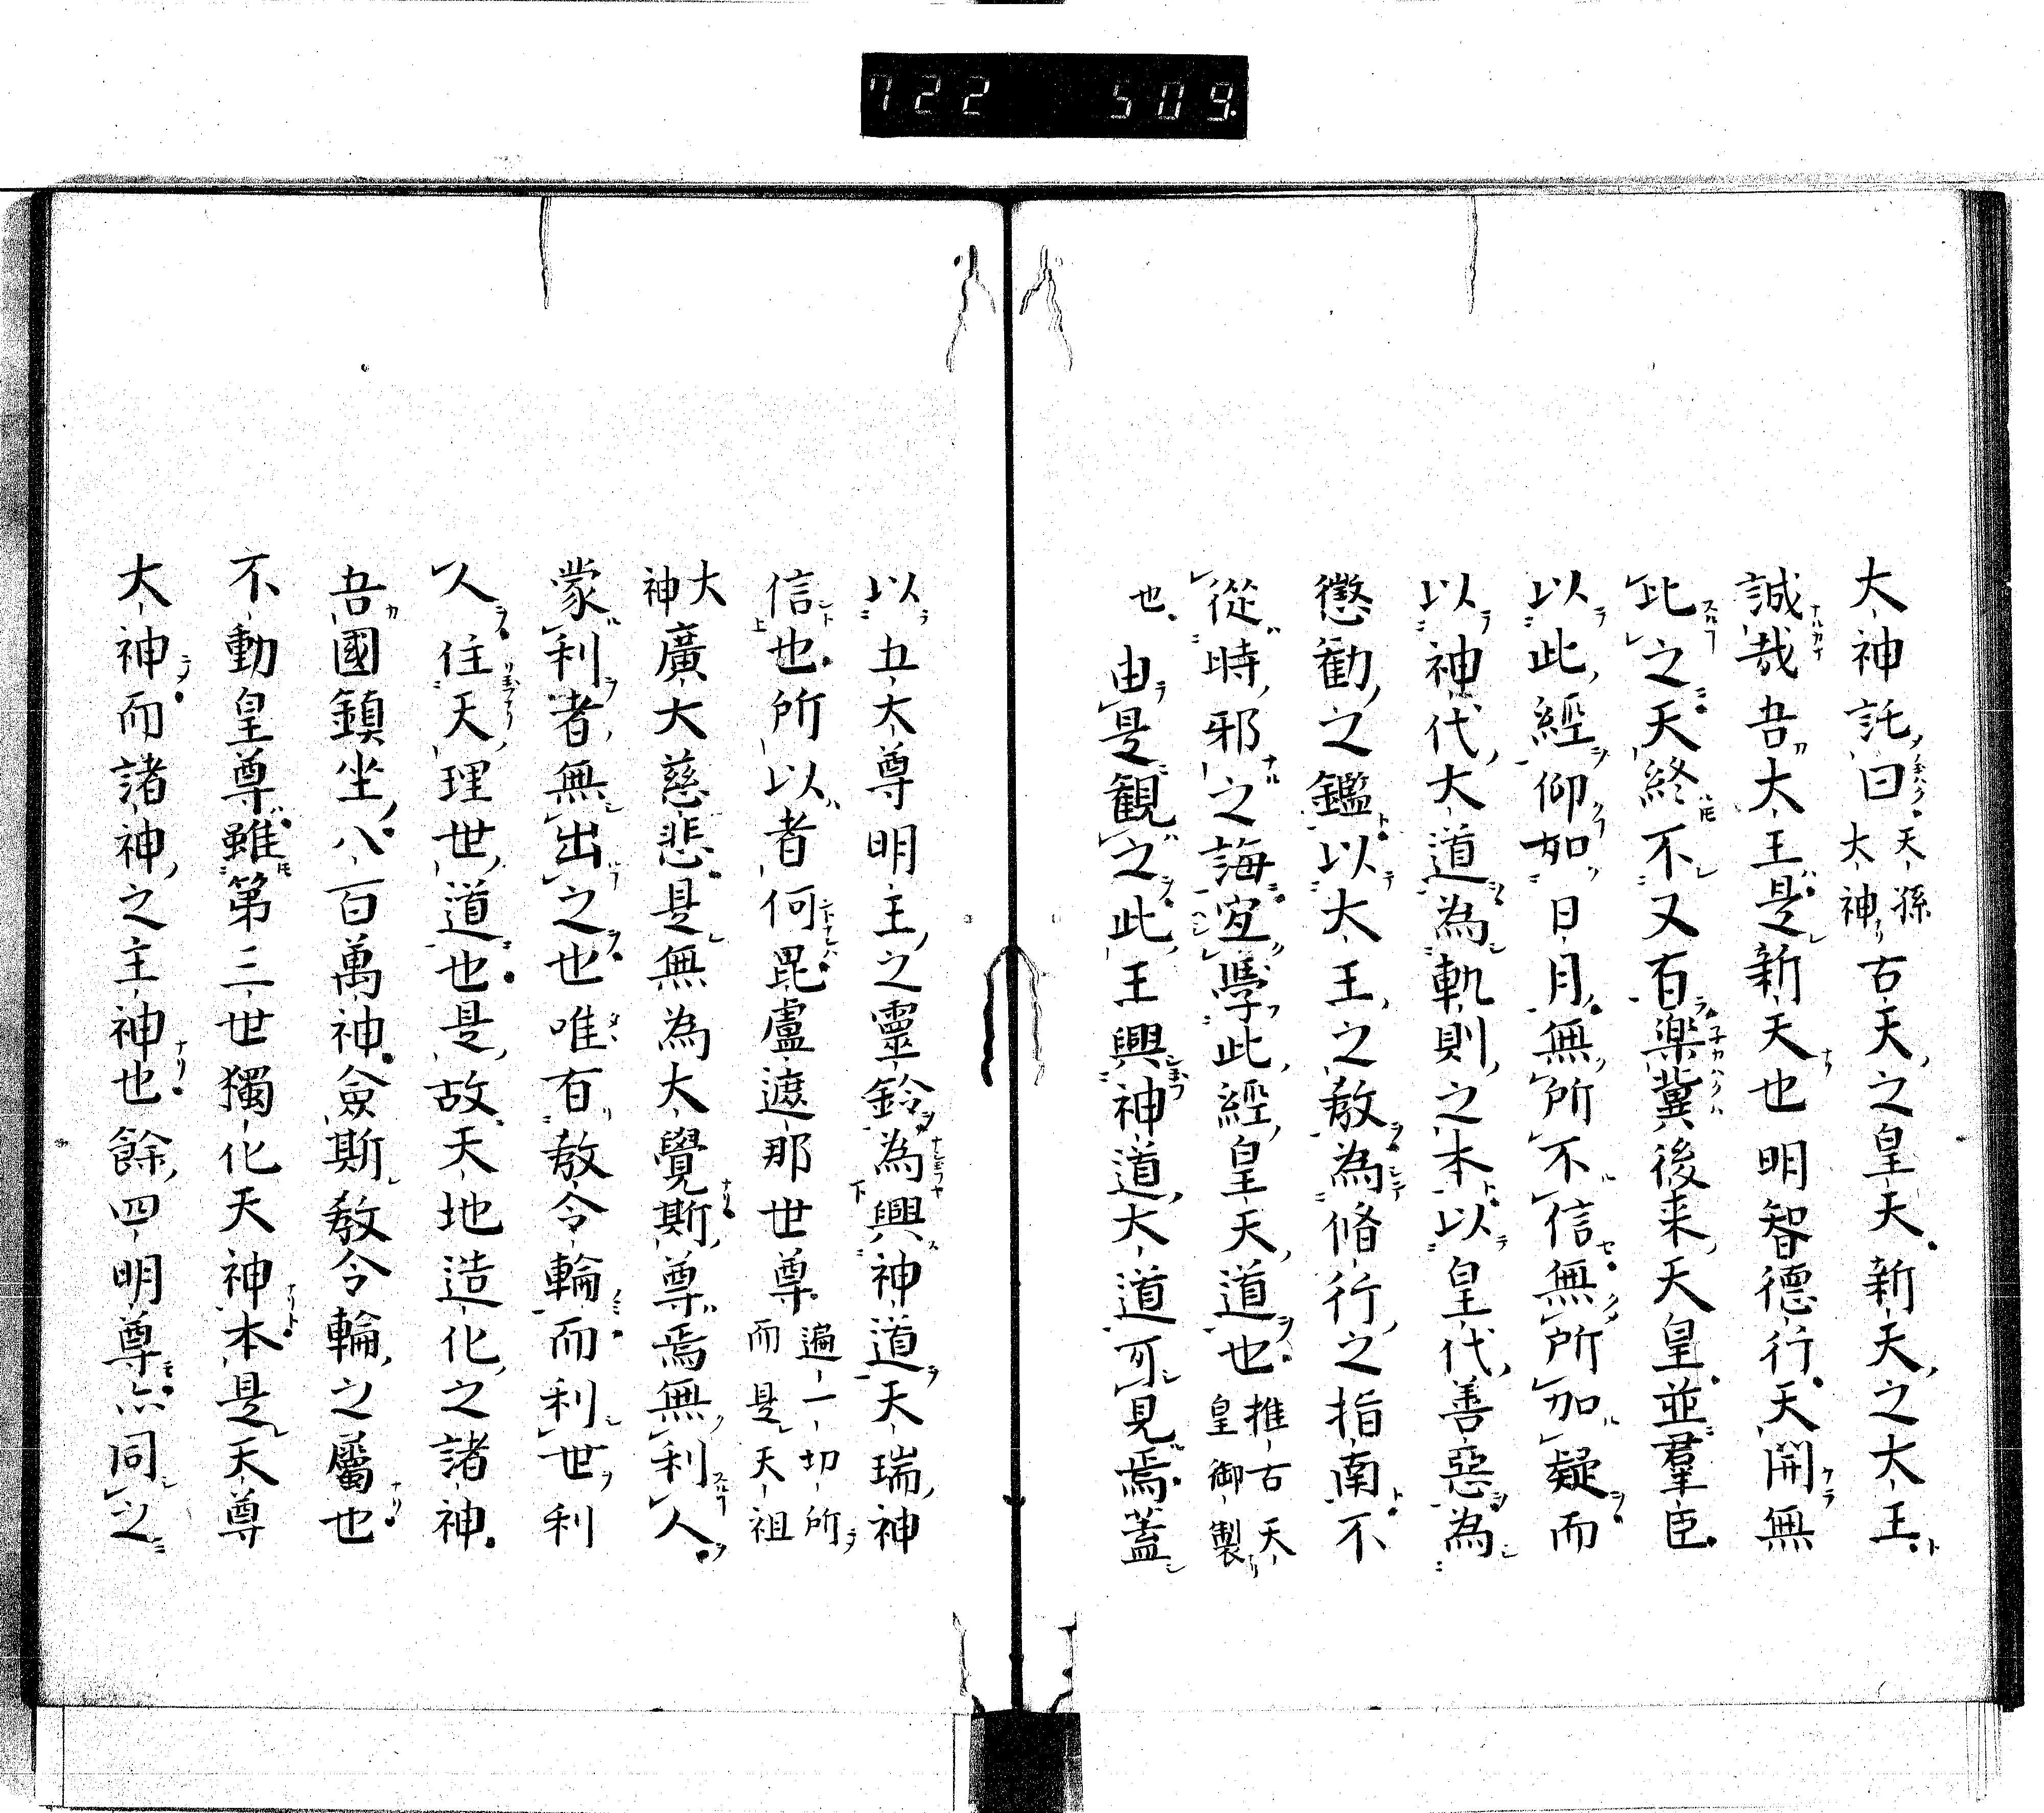 722 509.
大神託曰天孫大神古天之皇天新天之大王
誠哉吾大王是新天也明智德行天開無
比之天終不又有楽冀後来天皇並羣臣
以此經仰如日月無所不信無所加疑而
以神代大道為軌則之本以皇代善惡為
懲勸之鑑以大王之教為脩行之指南不
從時邪之誨宜學此經皇天道也推古天皇御製
也由是観之此王興神道大道可見焉蓋
以五大尊明主之靈鈴為興神道天瑞神
信也所以者何毘盧遮那世尊遍一切所而是天祖
大神廣大慈悲是無為大覺斯尊焉無利人
蒙利者無出之也唯有教令輪而利世利
人住天理世道也是故天地造化之諸神
吾國鎮坐八百萬神僉斯教令輪之屬也
不動皇尊雖第三世獨化天神本是天尊
大神而諸神之主神也餘四明尊亦同之